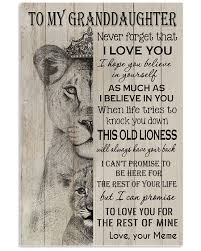 TO MY GRANDDAUGHTER
Never forget that
I LOVE YOU
I hope you believe
in yourself
AS MUCH AS
I BELIEVE IN YOU
WHEN LIFE TRIES TO
KNOCK YOU DOWN
THIS OLD LIONESS
will always have your back
I CAN'T PROMISE TO
BE HERE FOR
THE REST OF YOUR LIFE
but I can promise
TO LOVE YOU FOR
THE REST OF MINE
Love, your Meme